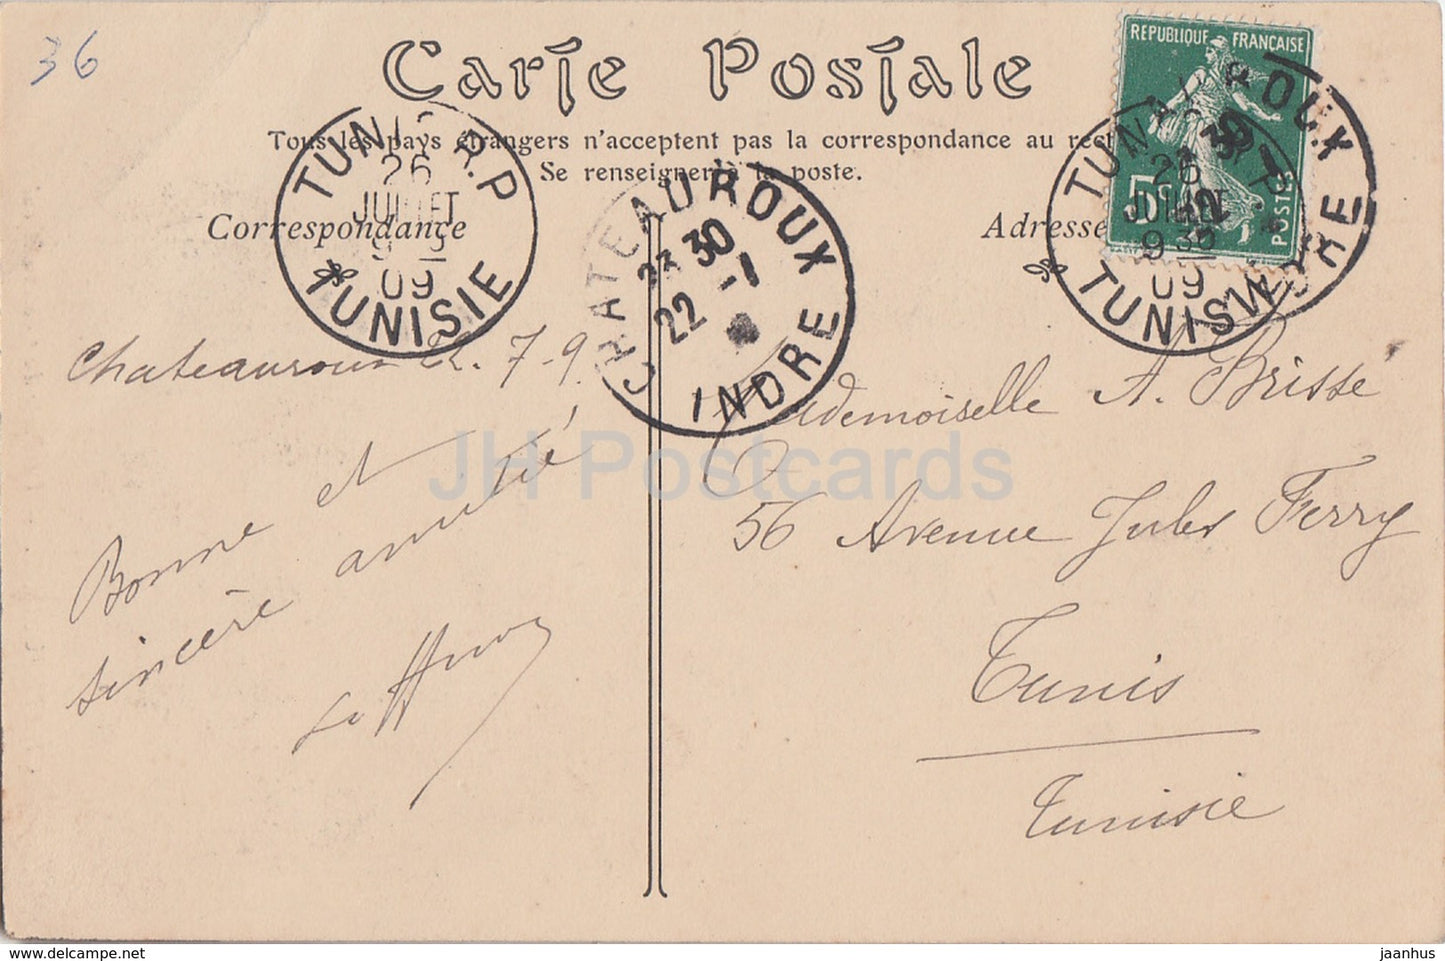 36
Carte Postale
Tous les pays étrangers n'acceptent pas la correspondance au rect
Se renseigner à la poste.
Correspondance
Adresse
REPUBLIQUE FRANÇAISE
5c
POSTES
TUNIS R.P
26
JUILLET
09
TUNISIE
CHATEAUROUX
23 30
22 -7
INDRE
TUNIS R.P
26
JUILLET
9 35
09
TUNISIE
ROUX
INDRE
Chateauroux 22.7-9
Bonne et
sincère amitié!
Mademoiselle A. Brissé
56 Avenue Jules Ferry
Tunis
Tunisie
JH Postcards
jaanhus